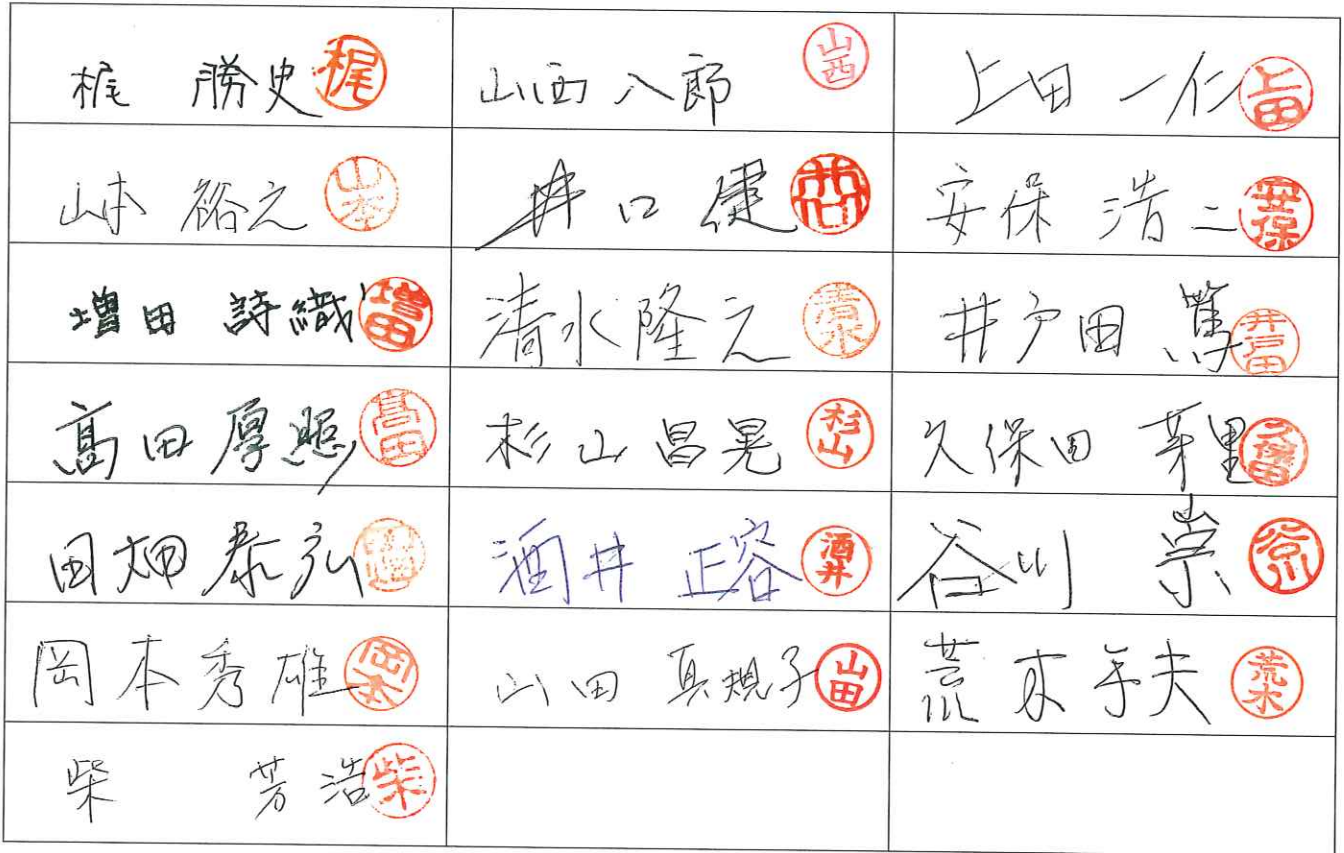 梶 勝史 梶 山西八郎 山西 上田 一仁 上田
山本 裕之 山本 井口 健 井口 安保 浩二 安保
増田 詩織 増田 清水隆之 清水 井戸田 篤 井戸田
髙田厚照 髙田 杉山昌晃 杉山 久保田 芽里 久保田
田畑泰弘 酒井 正容 酒井 谷川 崇 谷川
岡本秀雄 岡本 山田 真規子 山田 荒木 夫 荒木
柴 芳浩 柴